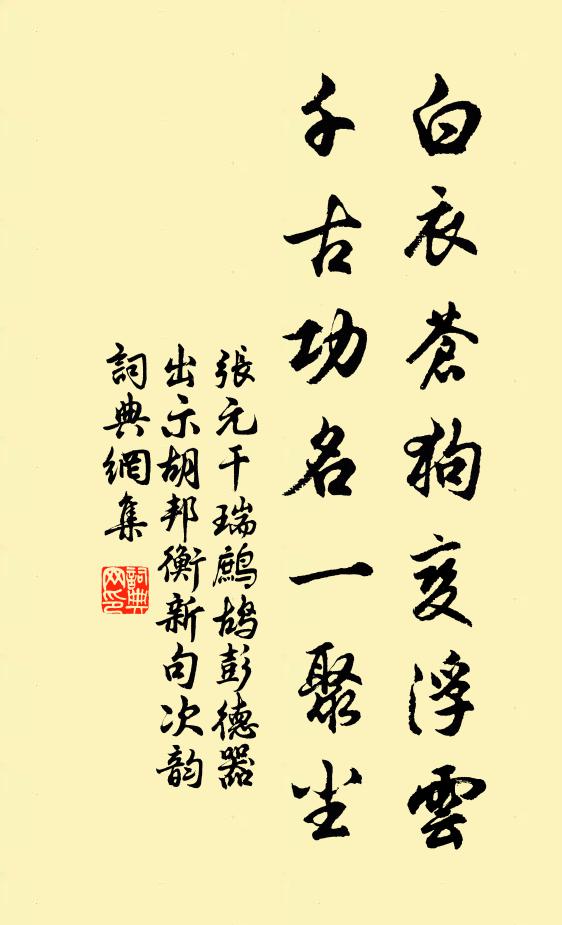 白衣蒼狗变浮雲
千古功名一聚尘
張元干瑞鷓鴣彭德器
出示胡邦衡新句次韵
詞典網集
詞典網印